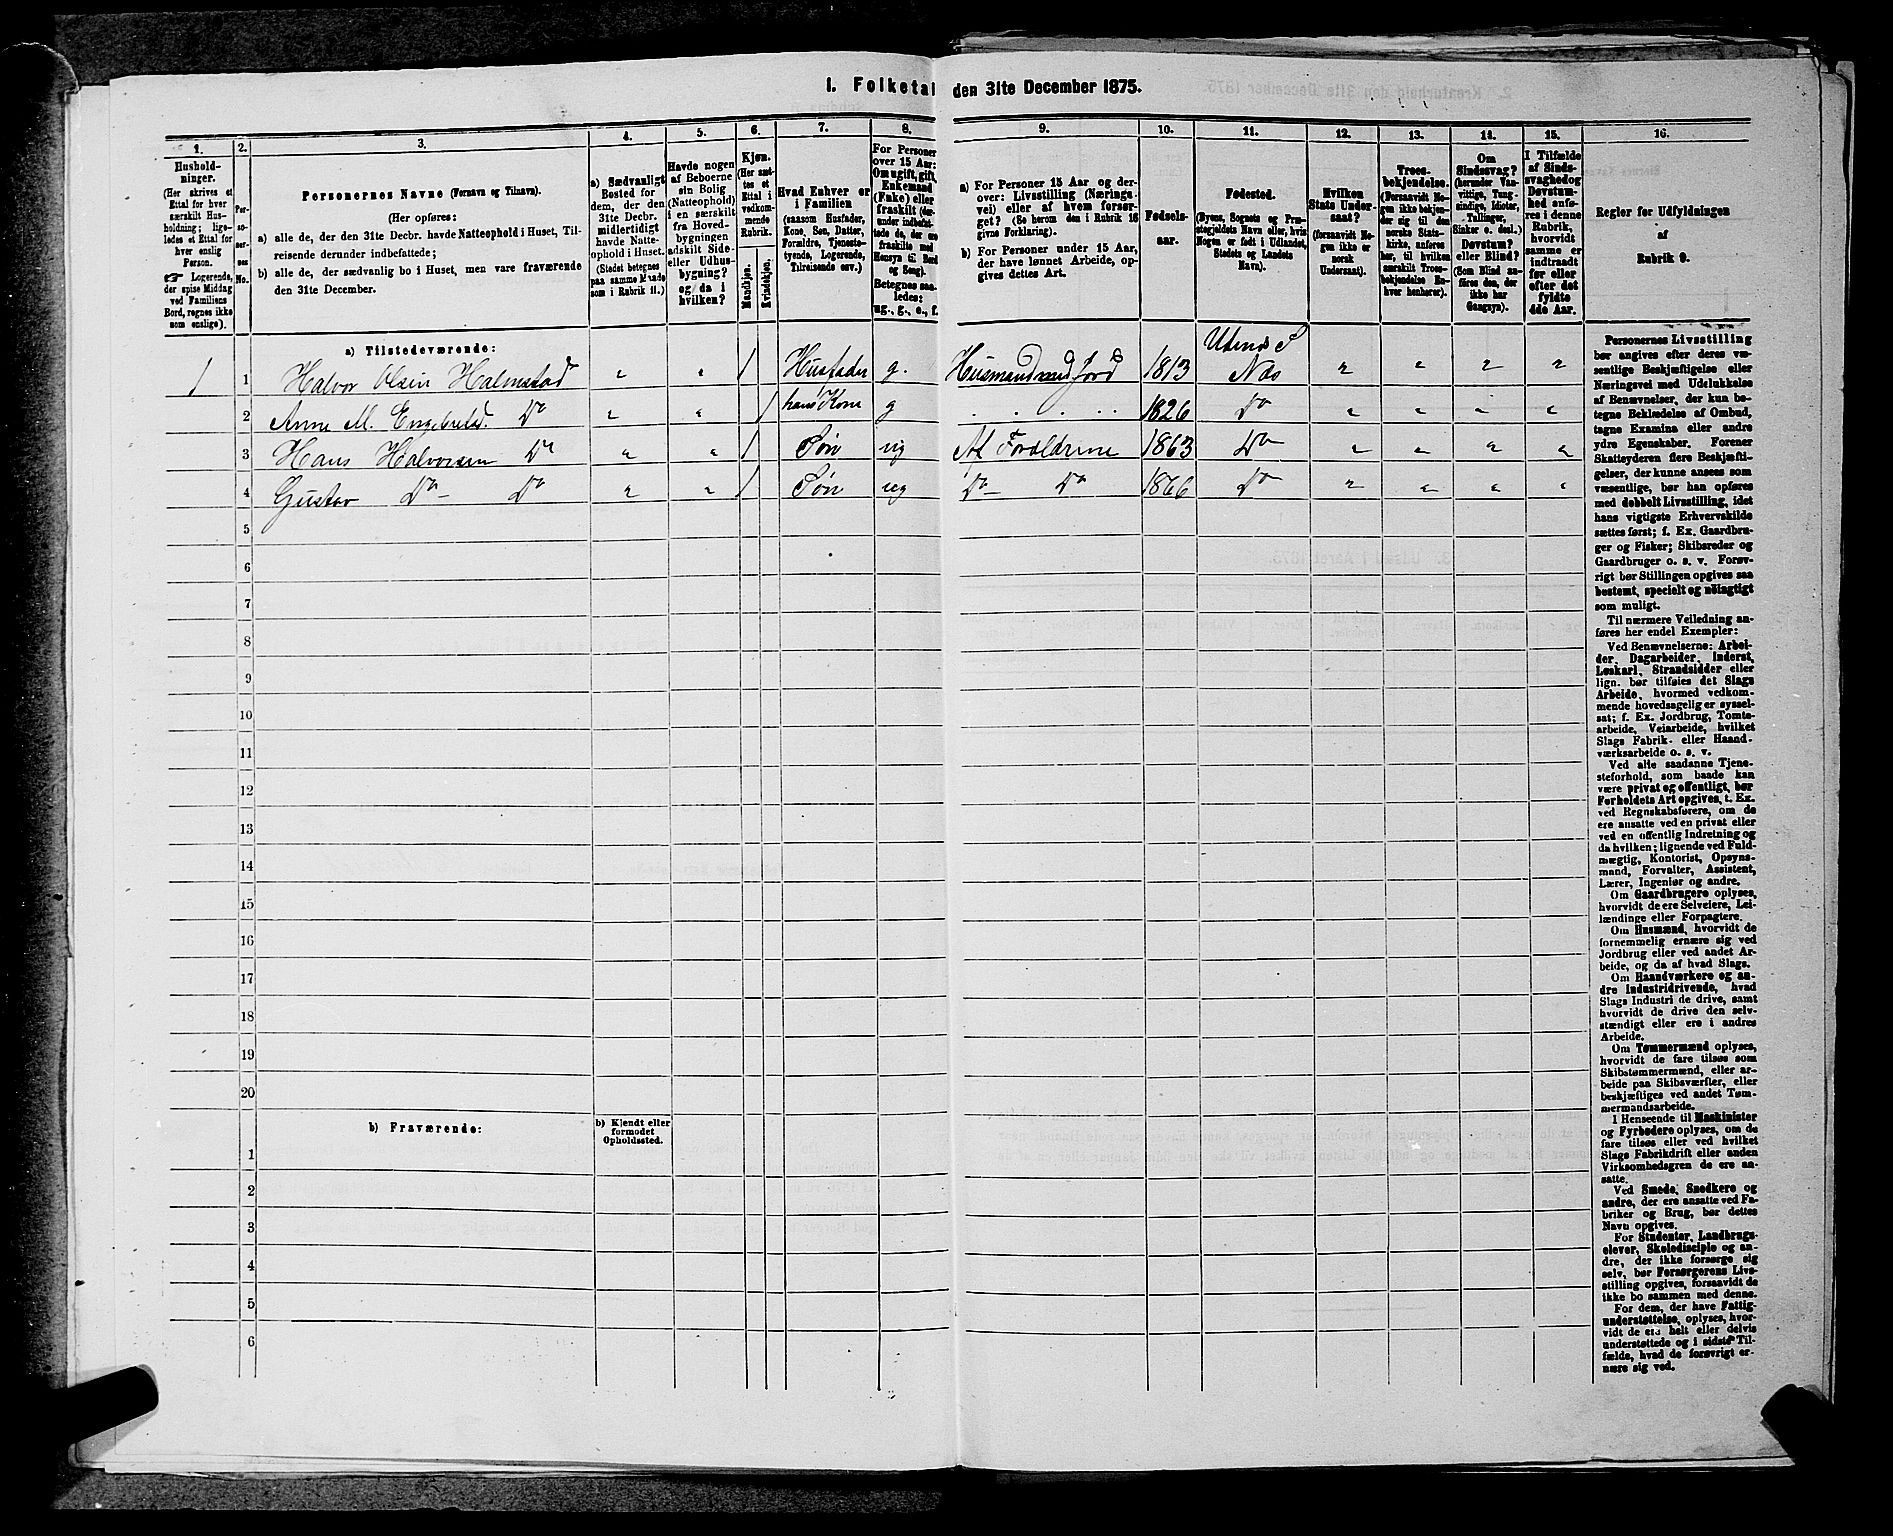 1. Folketal den 31te December 1875.
1. 2. 3. 4. 5. 6. 7. 8. 9. 10. 11. 12. 13. 14. 15. 16.
Hushold-
ninger.
(Her skrives et
Ettal for hver
særskilt Hus-
holdning; lige-
ledes et Ettal for
hver enslig
Person.
☞ Logerende,
der spise Middag
ved Familiens
Bord, regnes ikke
som enslige).
Per-
soner-
nes
No.
Personernes Navne (Fornavn og Tilnavn).
(Her opføres:
a) alle de, der den 31te Decbr. havde Natteophold i Huset, Til-
reisende derunder indbefattede;
b) alle de, der sædvanlig bo i Huset, men vare fraværende
den 31te December.
a) Sædvanligt
Bosted for
dem, der den
31te Decbr.
midlertidigt
havde Natte-
ophold i Huset.
(Stedet betegnes
paa samme Maade
som i Rubrik 11.)
Havde nogen
af Beboerne
sin Bolig
(Natteophold)
i en særskilt
fra Hoved-
bygningen
adskilt Side-
eller Udhus-
bygning?
og da i
hvilken?
Kjøn.
(Her sæt-
tes et
Ettal i
vedkom-
mende
Rubrik.
Mandkjøn.
Kvindekjøn.
Hvad Enhver er
i Familien
(saasom Husfader,
Kone, Søn, Datter,
Forældre, Tjeneste-
tyende, Logerende,
Tilreisende osv.)
For Personer
over 15 Aar:
Om ugift, gift,
Enkemand
(Enke) eller
fraskilt
Betegnes saa-
ledes:
ug., g., e., f.
a) For Personer 15 Aar og der-
over: Livsstilling (Nærings-
vei) eller af hvem forsør-
get? (Se herom den i Rubrik 16
givne Forklaring).
b) For Personer under 15 Aar,
der have lønnet Arbeide, op-
gives dettes Art.
Fødsels-
aar.
Fødested.
(Byens, Sognets og Præ-
stegjeldets Navn eller, hvis
Nogen er født i Udlandet,
Stedets og Landets
Navn).
Hvilken
Stats Under-
saat?
(forsaavidt No-
gen ikke er
norsk
Undersaat).
Troes-
bekjendelse.
(Forsaavidt No-
gen ikke bekjen-
der sig til den
norske Stats-
kirke, anføres
her, til hvilken
særskilt Troes-
bekjendelse En-
hver henhører).
Om
Sindssvag?
(herunder Van-
vittige, Tung-
sindige, Idioter,
Tullinger,
Sinker o. desl.)
Døvstum?
eller Blind?
(Som Blind an-
føres den, der
ikke har
Gangsyn).
I Tilfælde
af Sinds-
svaghed og
Døvstum-
hed anfø-
res i denne
Rubrik,
hvorvidt
samme er
indtraadt
før eller
efter det
fyldte
4de Aar.
Regler for Udfyldningen
af
Rubrik 9.
a) Tilstedeværende:
1 1 Halvor Olsen Halmstad " " 1 Husfader g. Husmand med Jord 1813 Næs " " " "
2 Anne M. Engebretsd. Do " " 1 hans Kone g . . . . . 1826 Do " " " "
3 Hans Halvorsen Do " " 1 Søn ug Af Forældrene 1863 Do " " " "
4 Gustav Do- Do " " 1 Søn ug Do- Do 1866 Do " " " "
5
6
7
8
9
10
11
12
13
14
15
16
17
18
19
20
b) Fraværende:
b) Kjendt eller
formodet
Opholdssted.
1
2
3
4
5
6
Personernes Livsstilling
bør angives efter deres væ-
sentlige Beskjæftigelse eller
Næringsvei med Udelukkelse
af Benævnelser, der kun be-
tegne Beklædelse af Ombud,
tagne Examina eller andre
ydre Egenskaber. Forener
Skatteyderen flere Beskjæfti-
gelser, der kunne ansees som
væsentlige, bør han opføres
med dobbelt Livsstilling, idet
hans vigtigste Erhvervskilde
sættes først; f. Ex. Gaardbru-
ger og Fisker; Skibsreder og
Gaardbruger o. s. v. Forøv-
rigt bør Stillingen opgives saa
bestemt, specielt og nøiagtigt
som muligt.
Til nærmere Veiledning an-
føres her endel Exempler:
Ved Benævnelserne: Arbei-
der, Dagarbeider, Inderst,
Løskarl, Strandsidder eller
lign. bør tilføies det Slags
Arbeide, hvormed vedkom-
mende hovedsagelig er syssel-
sat; f. Ex. Jordbrug, Tomte-
arbeide, Veiarbeide, hvilket
Slags Fabrik- eller Haand-
værksarbeide o. s. v.
Ved alle saadanne Tjene-
steforhold, som baade kan
være privat og offentligt, bør
Forholdets Art opgives, t. Ex.
ved Regnskabsførere, om de
ere ansatte ved en privat eller
ved en offentlig Indretning og
da hvilken; lignende ved Fuld-
mægtig, Kontorist, Opsyns-
mand, Forvalter, Assistent,
Lærer, Ingeniør og andre.
Om Gaardbrugere oplyses,
hvorvidt de ere Selveiere, Lei-
lændinge eller Forpagtere.
Om Husmænd, hvorvidt de
fornemmelig ernære sig ved
Jordbrug eller ved andet Ar-
beide, og da af hvad Slags.
Om Haandværkere og an-
dre Industridrivende, hvad
Slags Industri de drive, samt
hvorvidt de drive den selv-
stændigt eller ere i andres
Arbeide.
Om Tømmermænd oplyses,
hvorvidt de fare tilsøs som
Skibstømmermænd, eller ar-
beide paa Skibsværfter, eller
beskjæftiges ved andet Tøm-
mermandsarbeide.
I Henseende til Maskinister
og Fyrbødere oplyses, om de
fare tilsøs eller ved hvilket
Slags Fabrikdrift eller anden
Virksomhedsgren de ere an-
satte.
Ved Smede, Snedkere og
andre, der ere ansatte ved Fa-
briker og Brug, bør dettes
Navn opgives.
For Studenter, Landbrugs-
elever, Skoledisciple og an-
dre, der ikke forsørge sig
selv, bør Forsørgerens Livs-
stilling opgives, forsaavidt de
ikke bo sammen med denne.
For dem, der have Fattig-
understøttelse, oplyses, hvor-
vidt de ere helt eller delvis
understøttede og i sidste Til-
fælde, hvad de forøvrigt er-
nære sig ved.